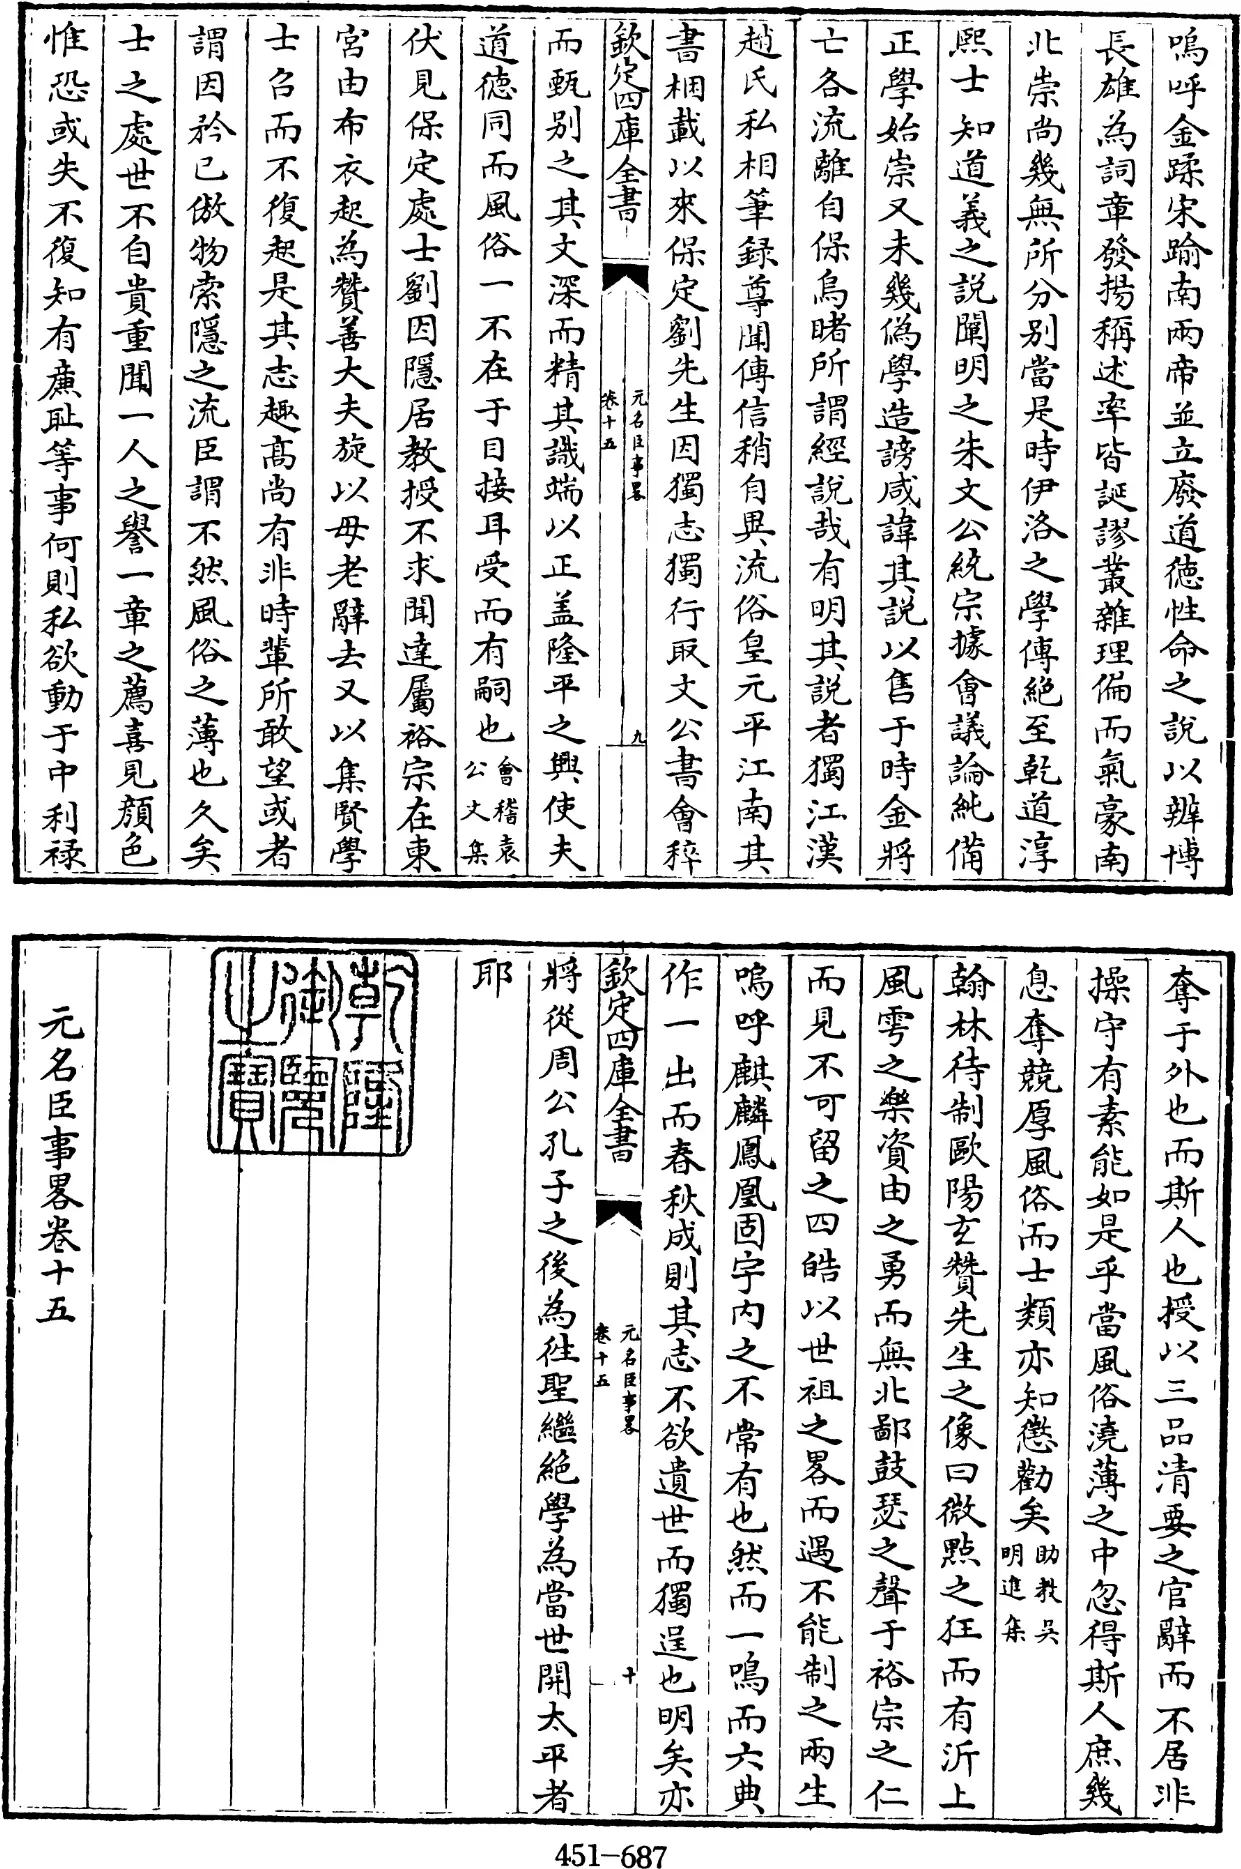 嗚呼金蹂宋踰南兩帝並立廢道德性命之說以辨博
長雄為詞章發揚稱述率皆誕謬叢雜理偏而氣豪南
北崇尚幾無所分別當是時伊洛之學傳絕至乾道淳
熙士知道義之說闡明之朱文公統宗據會議論純備
正學始崇又未幾偽學造謗咸諱其說以售于時金將
亡各流離自保烏睹所謂經說哉有明其說者獨江漢
趙氏私相筆録尊聞傳信稍自異流俗皇元平江南其
書梱載以來保定劉先生因獨志獨行取文公書㑹稡
欽定四庫全書
元名臣事畧
卷十五
九
而甄别之其文深而精其識端以正盖隆平之興使夫
道德同而風俗一不在于目接耳受而有嗣也㑹稽袁公文集
伏見保定處士劉因隱居教授不求聞達屬裕宗在東
宮由布衣起為贊善大夫旋以母老辭去又以集賢學
士召而不復起是其志趣髙尚有非時輩所敢望或者
謂因矜已傲物索隱之流臣謂不然風俗之薄也久矣
士之處世不自貴重聞一人之譽一章之薦喜見顔色
惟恐或失不復知有廉耻等事何則私欲動于中利禄
奪于外也而斯人也授以三品清要之官辭而不居非
操守有素能如是乎當風俗澆薄之中忽得斯人庶幾
息奔競厚風俗而士類亦知懲勸矣助教吳明進集
翰林待制歐陽玄贊先生之像曰微㸃之狂而有沂上
風雩之樂資由之勇而無北鄙鼓瑟之聲于裕宗之仁
而見不可留之四皓以世祖之畧而遇不能制之兩生
嗚呼麒麟鳳凰固宇内之不常有也然而一鳴而六典
作一出而春秋成則其志不欲遺世而獨逞也明矣亦
欽定四庫全書
元名臣事畧
卷十五
十
將從周公孔子之後為徃聖繼絶學為當世開太平者
耶
乾隆御覽之寶
元名臣事畧卷十五
451-687